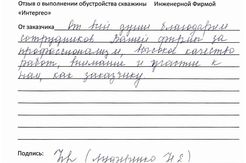 Отзыв о выполнении обустройства скважины Инженерной Фирмой
«Интергео»
От заказчика От всей души благодарим
сотрудников Вашей фирмы за
профессионализм, высокое качество
работ, внимание и участие к
нам, как заказчику
Подпись: